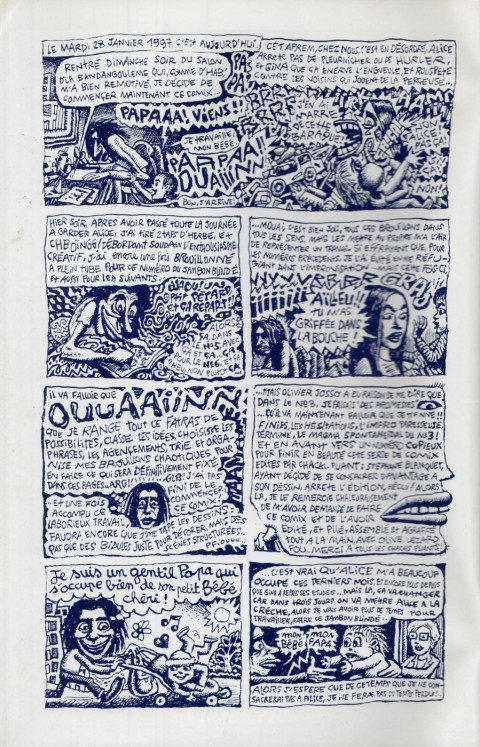 LE MARDI 28 JANVIER 1997, C'EST AUJOURD'HUI.
RENTRÉ DIMANCHE SOIR DU SALON
D'LA BANDANGOULEME QUI, COMME D'HAB,
M'A BIEN REMOTIVÉ, JE DÉCIDE DE
COMMENÇER MAINTENANT CE COMIX.
PAPAAA! VIENS!!
JE TRAVAILLE,
MON BÉBÉ
PAPPAA!
OUAIINN
BON, J'ARRIVE!
CET APREM, CHEZ NOUS. C'EST EN DÉSORDRE, ALICE
ARRÊTE PAS DE PLEURNICHER OU DE HURLER,
ET GINA QUE ÇA ÉNERVE L'ENGUEULE, ET ROUSPÈTE
CONTRE LES VOISINS QUI JOUENT DE LA PERCEUSE...
J'EN AI
MARRE
DE CETTE
BARAQUE
NON!
HIER SOIR, APRÈS AVOIR PASSÉ TOUTE LA JOURNÉE
À GARDER ALICE, J'AI TIRÉ 2 TAFS D'HERBE, ET
DÉBORDANT SOUDAIN D'ENTHOUSIASME
CRÉATIF, J'AI ENCORE UNE FOIS BROUILLONNÉ
À PLEIN TUBE POUR CE NUMÉRO DU JAMBON BLINDÉ
ET AUSSI POUR LES SUIVANTS.
PETIT PÉTARD
ET ÇA REPART!!
ALORS
ÇA, DANS
LE N°5, AVEC
ÇA ET ÇA.. ÇA
POUR LE N°6. ET ÇA
HEU, NON PLUTÔT
MOUAIS, C'EST BIEN JOLI, TOUS CES BROUILLONS DANS
TOUS LES SENS, MAIS LES METTRE AU PROPRE M'A L'AIR
DE REPRÉSENTER UN TRAVAIL SI EFFRAYANT QUE, POUR
LES NUMÉROS PRÉCÉDENTS, JE L'AI ÉVITÉ EN ME RÉFU-
GIANT DANS L'IMPROVISATION. MAIS CETTE FOIS-CI,
AÏLLEU!!
TU M'AS
GRIFFÉE DANS
LA BOUCHE!
IL VA FALLOIR QUE
OUUAÂÏÏNN
QUE JE RANGE TOUT CE FATRAS DE
POSSIBILITÉS, CLASSE LES IDÉES, CHOISISSE LES
PHRASES, LES AGENCEMENTS, TRIE ET ORGA-
NISE MES BROUILLONS CHAOTIQUES POUR
EN FAIRE CE QUI SERA DÉFINITIVEMENT FIXÉ
DANS CES PAGES..
J'AI PAS
FINI DE LE
COMMENÇER
CE COMIX!
ET UNE FOIS
ACCOMPLI CE
LABORIEUX TRAVAIL,
FAUDRA ENCORE QUE J'ME TAPE LES DESSINS:
PAS QUE DES BIDULES JUSTE POUR DÉCORER, MAIS DES
SCÈNES STRUCTURÉES..
...MAIS OLIVIER JOSSO A EU RAISON DE ME DIRE QUE
DANS LE N°3, JE FAISAIS DES PROMESSES
..QU'IL VA MAINTENANT FALLOIR QUE JE TIENNE!!
FINIDS, LES HÉSITATIONS, L'IMPRO PARESSEUSE,
TERMINÉ, LE MAGMA SPONTANÉ DU N°3!
ET EN AVANT VERS UN NUMÉRO SÉRIEUX
POUR FINIR EN BEAUTÉ CETTE SÉRIE DE COMIX
ÉDITÉS PAR CHACAL PUANT: STÉPHANE BLANQUET,
AYANT DÉCIDÉ DE SE CONSACRER DAVANTAGE À
SON DESSIN, ARRÊTE L'ÉDITION, HÉLAS! ALORS
LÀ, JE LE REMERCIE CHALEUREUSEMENT
DE M'AVOIR DEMANDÉ DE FAIRE
CE COMIX ET DE L'AVOIR
ÉDITÉ, ET PLIÉ, ASSEMBLÉ ET AGRAFÉ
TOUT À LA MAIN, AVEC OLIVE.
FOU. MERCI À TOUS LES CHERS PUANTS
Je suis un gentil Papa qui
s'occupe bien de son petit Bébé
chéri!
...C'EST VRAI QU'ALICE M'A BEAUCOUP
OCCUPÉ CES DERNIERS MOIS, ET ENCORE PLUS DEPUIS
QUE GINA A REPRIS SES ÉTUDES... MAIS LÀ, ÇA VA CHANGER
CAR DANS TROIS JOURS, ON VA METTRE ALICE À LA
CRÈCHE, ALORS JE VAIS AVOIR PLUS DE TEMPS POUR
TRAVAILLER, FAIRE CE JAMBON BLINDÉ..
MON
BÉBÉ
MON
PAPA
ALORS J'ESPÈRE QUE DE CE TEMPS QUE JE NE CON-
SACRERAI PAS À ALICE, JE NE FERAI PAS DU TEMPS PERDU!..